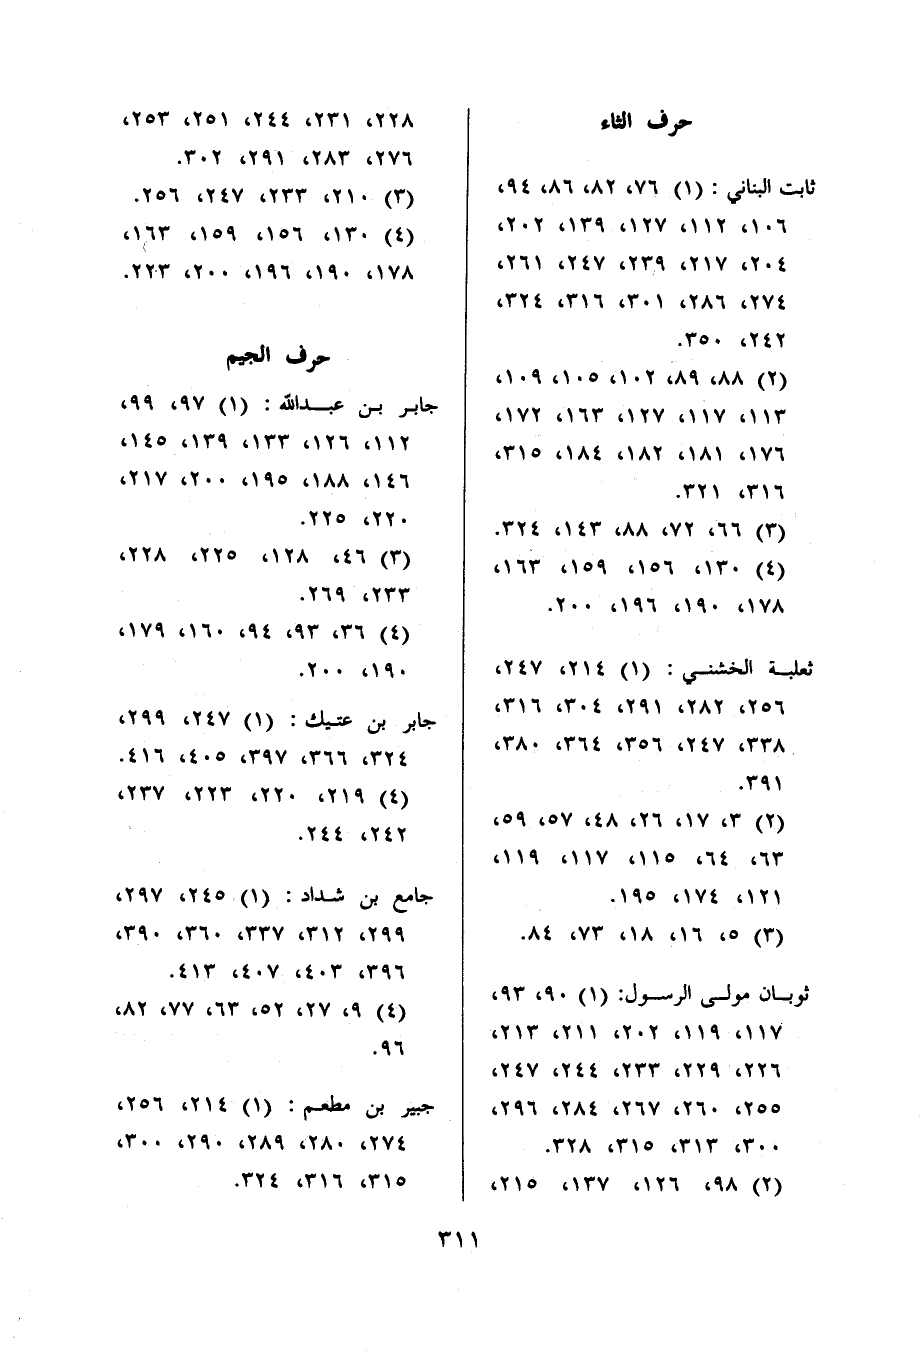 حرف الثاء
ثابت البناني : (١) ٧٦، ٨٢، ٨٦، ٩٤،
١٠٦، ١١٢، ١٢٧، ١٣٩، ٢٠٢،
٢٠٤، ٢١٧، ٢٣٩، ٢٤٧، ٢٦١،
٢٧٤، ٢٨٦، ٣٠١، ٣١٦، ٣٢٤،
٢٤٢، ٣٥٠.
(٢) ٨٨، ٨٩، ١٠٢، ١٠٥، ١٠٩،
١١٣، ١١٧، ١٢٧، ١٦٣، ١٧٢،
١٧٦، ١٨١، ١٨٢، ١٨٤، ٣١٥،
٣١٦، ٣٢١.
(٣) ٦٦، ٧٢، ٨٨، ١٤٣، ٣٢٤.
(٤) ١٣٠، ١٥٦، ١٥٩، ١٦٣،
١٧٨، ١٩٠، ١٩٦، ٢٠٠.
ثعلبة الخشني : (١) ٢١٤، ٢٤٧،
٢٥٦، ٢٨٢، ٢٩١، ٣٠٤، ٣١٦،
٣٣٨، ٢٤٧، ٣٥٦، ٣٦٤، ٣٨٠،
٣٩١.
(٢) ٣، ١٧، ٢٦، ٤٨، ٥٧، ٥٩،
٦٣، ٦٤، ١١٥، ١١٧، ١١٩،
١٢١، ١٧٤، ١٩٥.
(٣) ٥، ١٦، ١٨، ٧٣، ٨٤.
ثوبان مولى الرسول: (١) ٩٠، ٩٣،
١١٧، ١١٩، ٢٠٢، ٢١١، ٢١٣،
٢٢٦، ٢٢٩، ٢٣٣، ٢٤٤، ٢٤٧،
٢٥٥، ٢٦٠، ٢٦٧، ٢٨٤، ٢٩٦،
٣٠٠، ٣١٣، ٣١٥، ٣٢٨.
(٢) ٩٨، ١٢٦، ١٣٧، ٢١٥،
٢٢٨، ٢٣١، ٢٤٤، ٢٥١، ٢٥٣،
٢٧٦، ٢٨٣، ٢٩١، ٣٠٢.
(٣) ٢١٠، ٢٣٣، ٢٤٧، ٢٥٦.
(٤) ١٣٠، ١٥٦، ١٥٩، ١٦٣،
١٧٨، ١٩٠، ١٩٦، ٢٠٠، ٢٢٣.
حرف الجيم
جابر بن عبدالله : (١) ٩٧، ٩٩،
١١٢، ١٢٦، ١٣٣، ١٣٩، ١٤٥،
١٤٦، ١٨٨، ١٩٥، ٢٠٠، ٢١٧،
٢٢٠، ٢٢٥.
(٣) ٤٦، ١٢٨، ٢٢٥، ٢٢٨،
٢٣٣، ٢٦٩.
(٤) ٣٦، ٩٣، ٩٤، ١٦٠، ١٧٩،
١٩٠، ٢٠٠.
جابر بن عتيك : (١) ٢٤٧، ٢٩٩،
٣٢٤، ٣٦٦، ٣٩٧، ٤٠٥، ٤١٦.
(٤) ٢١٩، ٢٢٠، ٢٢٣، ٢٣٧،
٢٤٢، ٢٤٤.
جامع بن شداد : (١) ٢٤٥، ٢٩٧،
٢٩٩، ٣١٢، ٣٣٧، ٣٦٠، ٣٩٠،
٣٩٦، ٤٠٣، ٤٠٧، ٤١٣.
(٤) ٩، ٢٧، ٥٢، ٦٣، ٧٧، ٨٢،
٩٦.
جبير بن مطعم : (١) ٢١٤، ٢٥٦،
٢٧٤، ٢٨٠، ٢٨٩، ٢٩٠، ٣٠٠،
٣١٥، ٣١٦، ٣٢٤.
٣١١